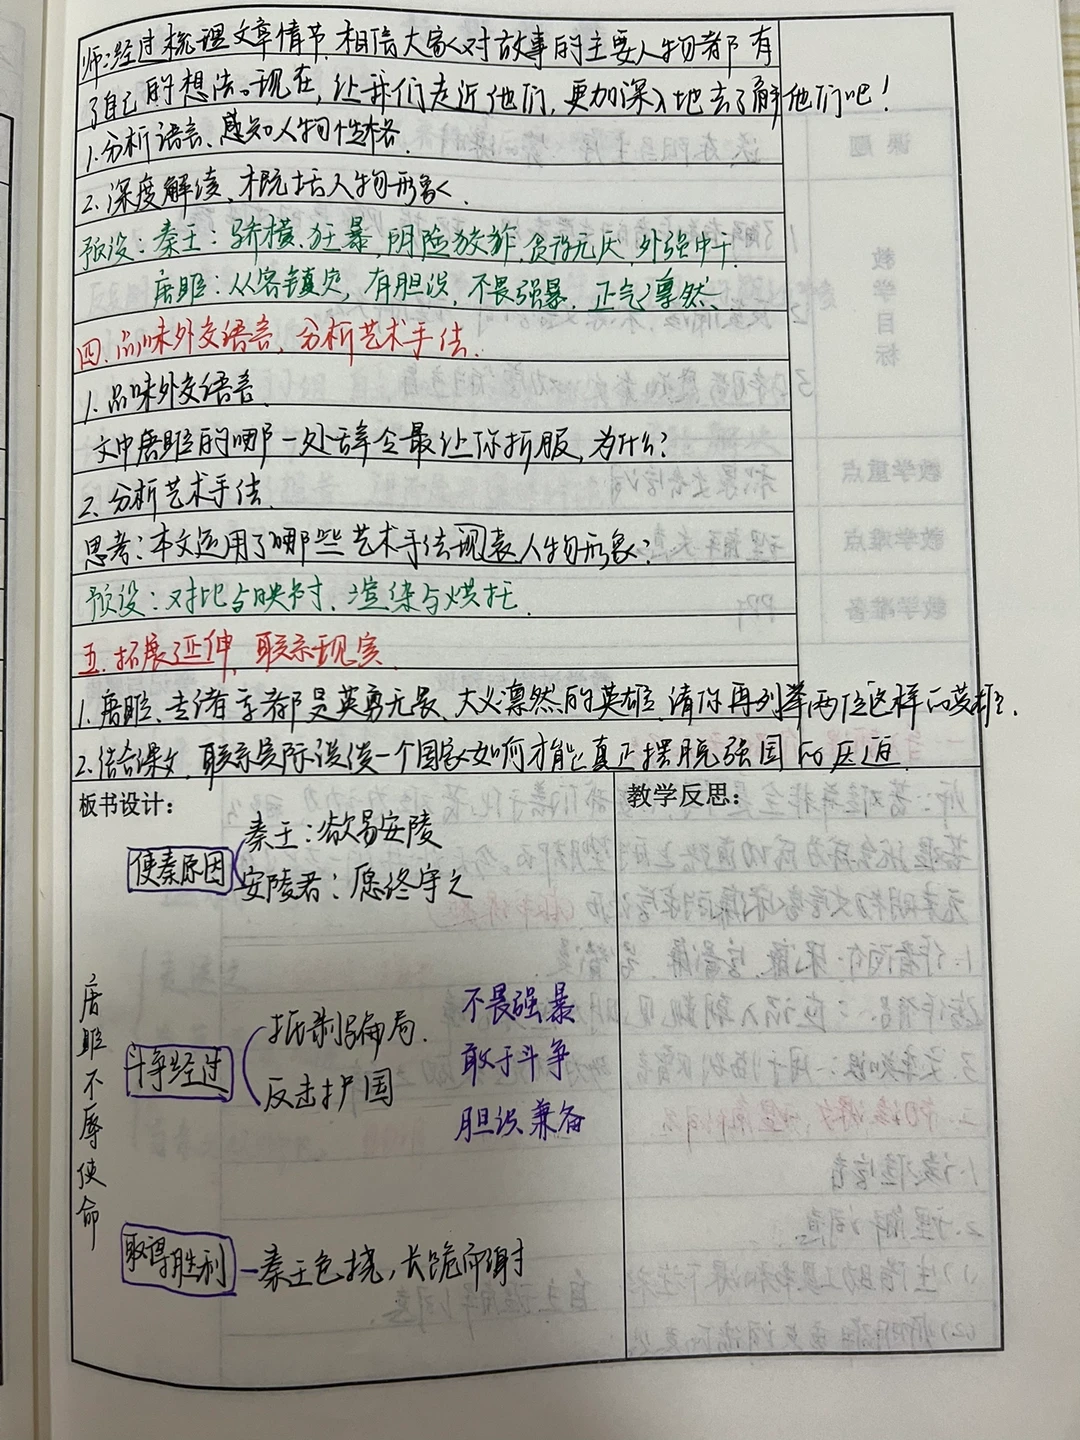 师:经过梳理文章情节,相信大家对故事的主要人物都有
了自己的想法。现在,让我们走近他们,更加深入地去了解他们吧!
1.分析语言、感知人物性格.
2.深度解读、概括人物形象
预设:秦王:骄横、狂暴,阴险狡诈,贪得无厌,外强中干.
唐雎:从容镇定,有胆识,不畏强暴、正气凛然、
四.品味外交语言、分析艺术手法.
1.品味外交语言
文中唐雎的哪一处辞令最让你折服,为什么?
2.分析艺术手法.
思考:本文运用了哪些艺术手法表现人物形象?
预设:对比与映衬、渲染与烘托.
五.拓展延伸,联系现实
1.唐雎、专诸等都是英勇无畏、大义凛然的英雄,请你再列举两位这样的英雄.
2.结合课文,联系实际谈谈一个国家如何才能真正摆脱强国的压迫.
板书设计:
教学反思:
唐雎不辱使命
使秦原因
秦王:欲易安陵
安陵君:愿终守之
斗争经过
抵制骗局.
反击护国
不畏强暴
敢于斗争
胆识兼备
取得胜利
秦王色挠,长跪而谢